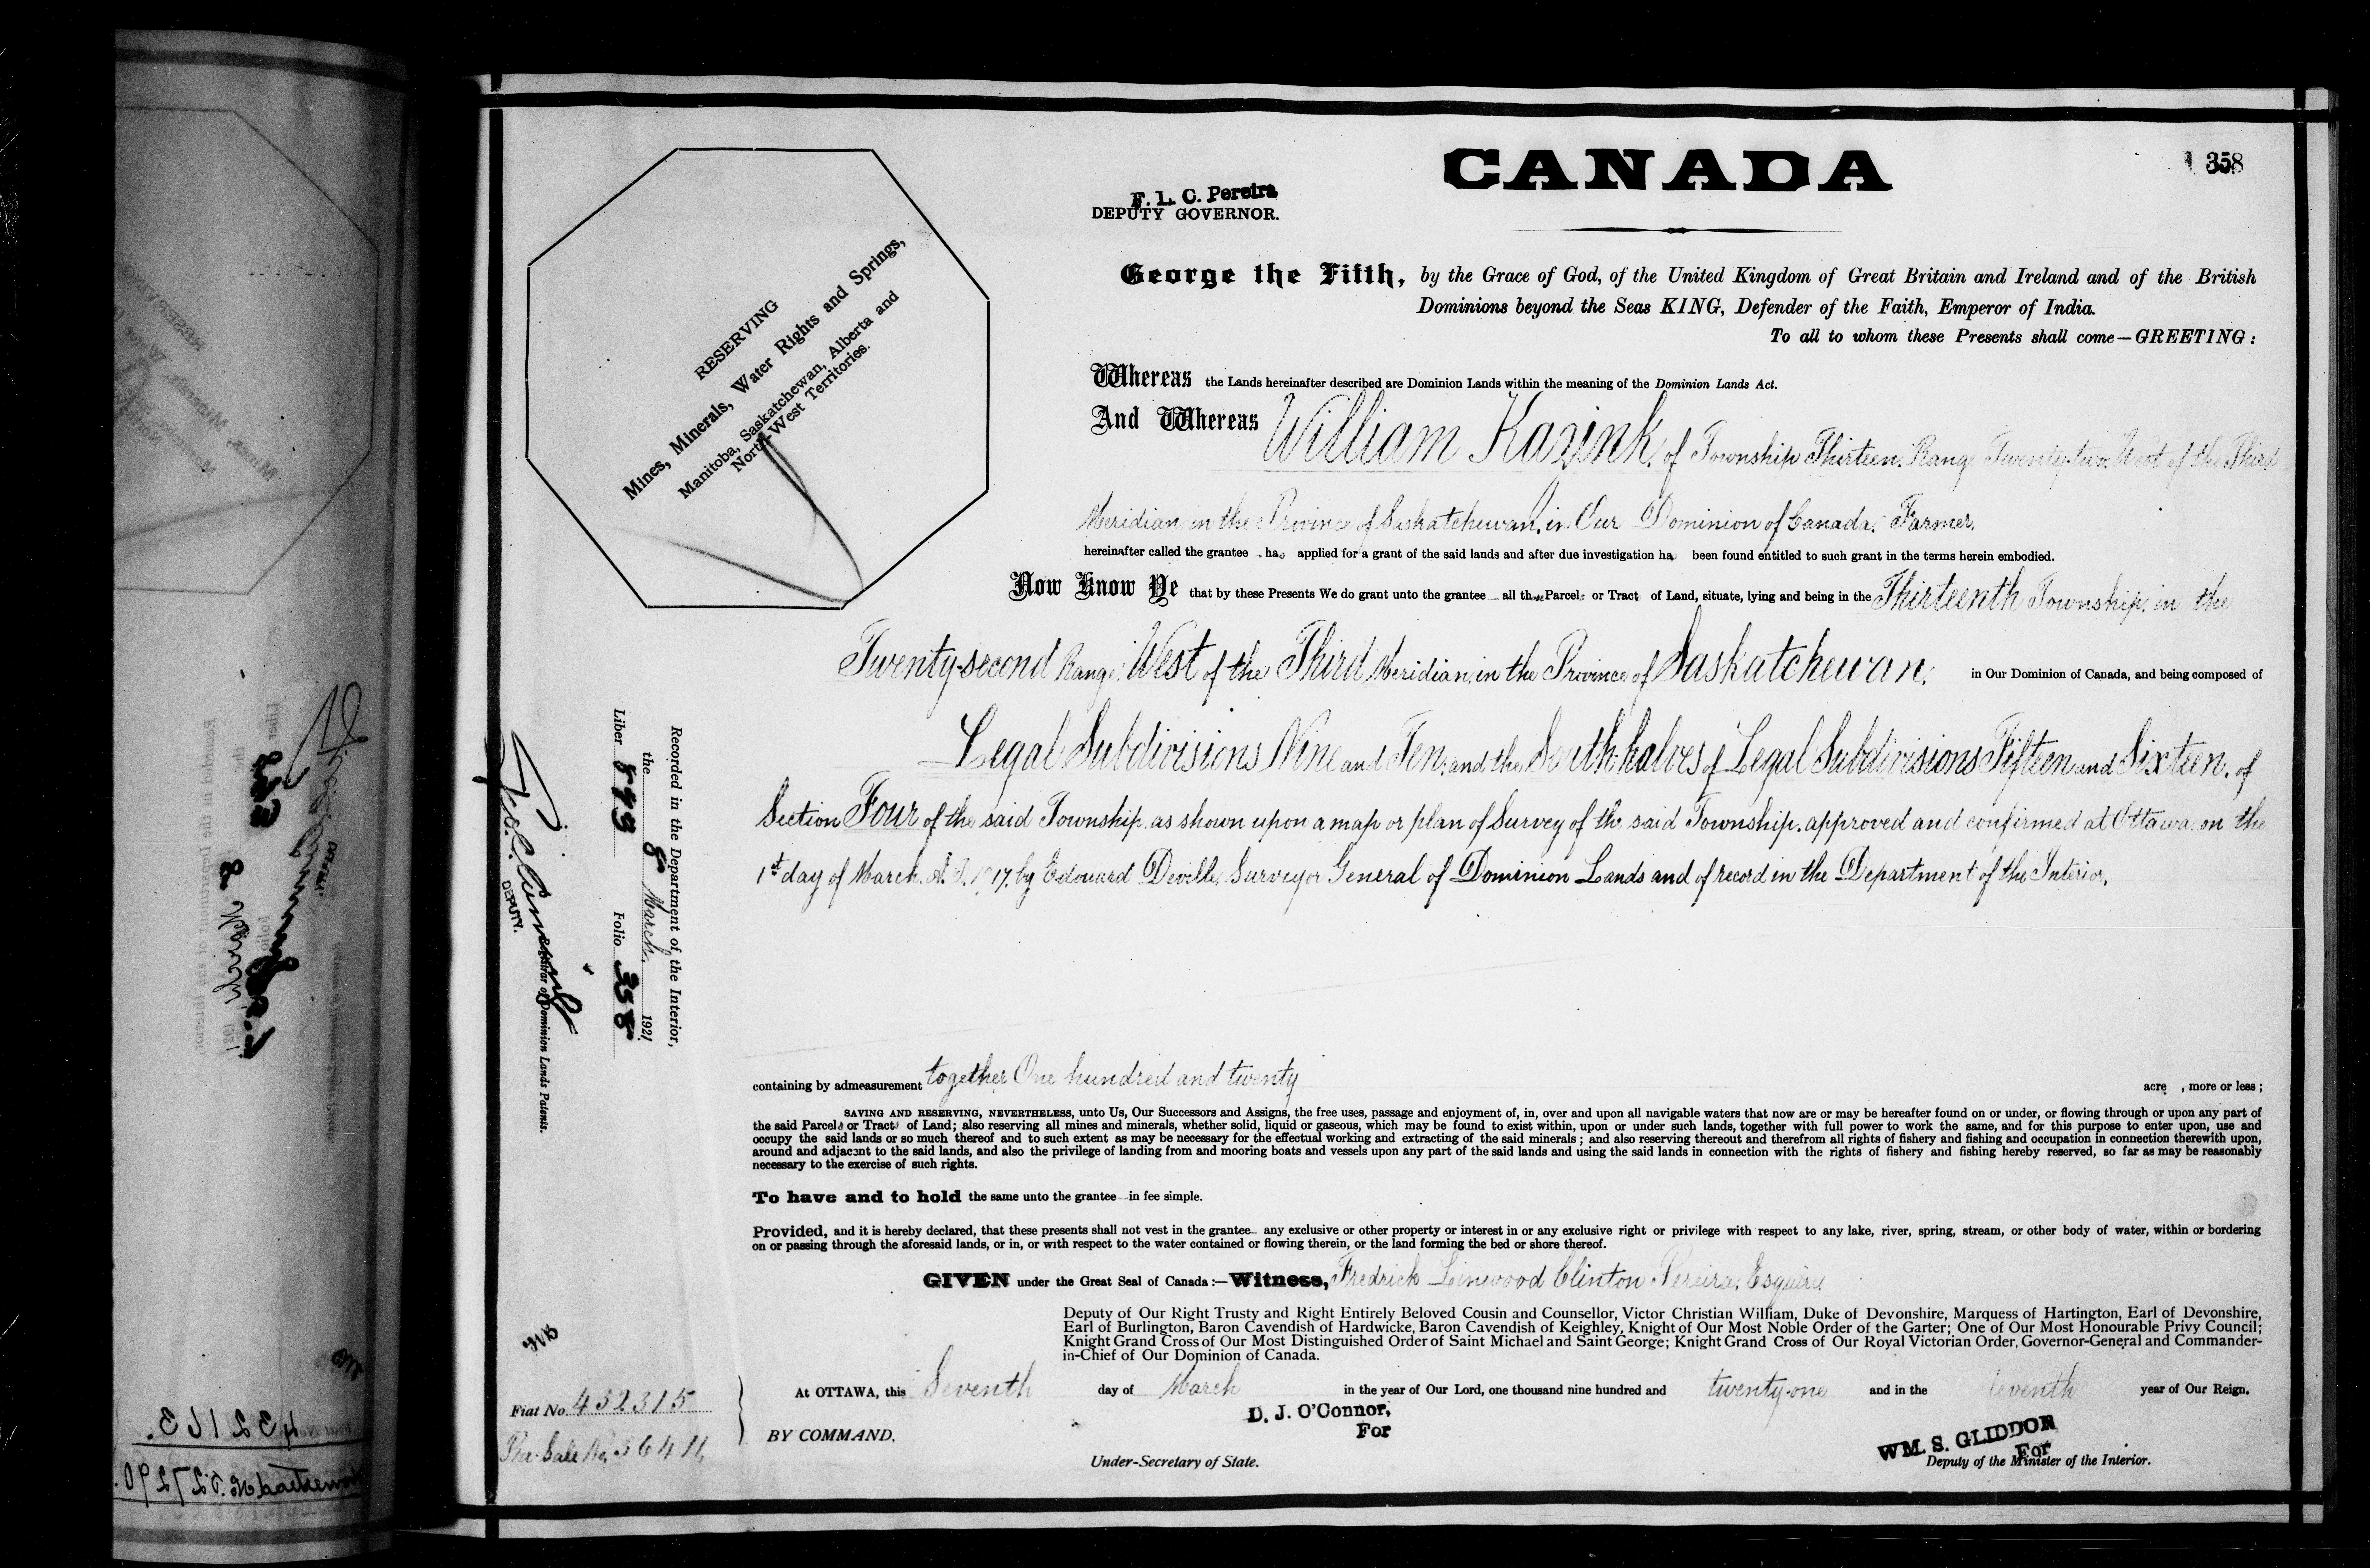 CANADA
358
F. L. C. Pereira
DEPUTY GOVERNOR.
RESERVING
Mines, Minerals, Water Rights and Springs,
Manitoba, Saskatchewan, Alberta and
North-West Territories.
George the Fifth, by the Grace of God, of the United Kingdom of Great Britain and Ireland and of the British
Dominions beyond the Seas KING, Defender of the Faith, Emperor of India.
To all to whom these Presents shall come—GREETING:
Whereas the Lands hereinafter described are Dominion Lands within the meaning of the Dominion Lands Act.
And Whereas William Kazink, of Township Thirteen, Range Twenty-two, West of the Third
Meridian, in the Province of Saskatchewan, in Our Dominion of Canada, Farmer,
hereinafter called the grantee has applied for a grant of the said lands and after due investigation has been found entitled to such grant in the terms herein embodied.
Now Know Ye that by these Presents We do grant unto the grantee all those Parcels or Tracts of Land, situate, lying and being in the Thirteenth Township, in the
Twenty-second Range, West of the Third Meridian, in the Province of Saskatchewan, in Our Dominion of Canada, and being composed of
Legal Subdivisions Nine and Ten, and the South halves of Legal Subdivisions Fifteen and Sixteen, of
Section Four of the said Township, as shown upon a map or plan of Survey of the said Township, approved and confirmed at Ottawa, on the
1st day of March, A.D. 1917, by Edouard Deville, Surveyor General of Dominion Lands and of record in the Department of the Interior,
containing by admeasurement together One hundred and twenty acre , more or less;
SAVING AND RESERVING, NEVERTHELESS, unto Us, Our Successors and Assigns, the free uses, passage and enjoyment of, in, over and upon all navigable waters that now are or may be hereafter found on or under, or flowing through or upon any part of
the said Parcels or Tracts of Land; also reserving all mines and minerals, whether solid, liquid or gaseous, which may be found to exist within, upon or under such lands, together with full power to work the same, and for this purpose to enter upon, use and
occupy the said lands or so much thereof and to such extent as may be necessary for the effectual working and extracting of the said minerals; and also reserving thereout and therefrom all rights of fishery and fishing and occupation in connection therewith upon,
around and adjacent to the said lands, and also the privilege of landing from and mooring boats and vessels upon any part of the said lands and using the said lands in connection with the rights of fishery and fishing hereby reserved, so far as may be reasonably
necessary to the exercise of such rights.
To have and to hold the same unto the grantee in fee simple.
Provided, and it is hereby declared, that these presents shall not vest in the grantee any exclusive or other property or interest in or any exclusive right or privilege with respect to any lake, river, spring, stream, or other body of water, within or bordering
on or passing through the aforesaid lands, or in, or with respect to the water contained or flowing therein, or the land forming the bed or shore thereof.
GIVEN under the Great Seal of Canada:—Witness, Fredrick Linwood Clinton Pereira, Esquire
Deputy of Our Right Trusty and Right Entirely Beloved Cousin and Counsellor, Victor Christian William, Duke of Devonshire, Marquess of Hartington, Earl of Devonshire,
Earl of Burlington, Baron Cavendish of Hardwicke, Baron Cavendish of Keighley, Knight of Our Most Noble Order of the Garter; One of Our Most Honourable Privy Council;
Knight Grand Cross of Our Most Distinguished Order of Saint Michael and Saint George; Knight Grand Cross of Our Royal Victorian Order, Governor-General and Commander-
in-Chief of Our Dominion of Canada.
At OTTAWA, this Seventh day of March in the year of Our Lord, one thousand nine hundred and twenty-one and in the leventh year of Our Reign.
BY COMMAND.
D. J. O'Connor,
For
Under-Secretary of State.
WM. S. GLIDDON
For
Deputy of the Minister of the Interior.
Recorded in the Department of the Interior,
the 8 March 1921
Liber 593 Folio 358
DEPUTY.
Registrar of Dominion Lands Patents.
Fiat No. 432315
Pre-Sale No. 36411